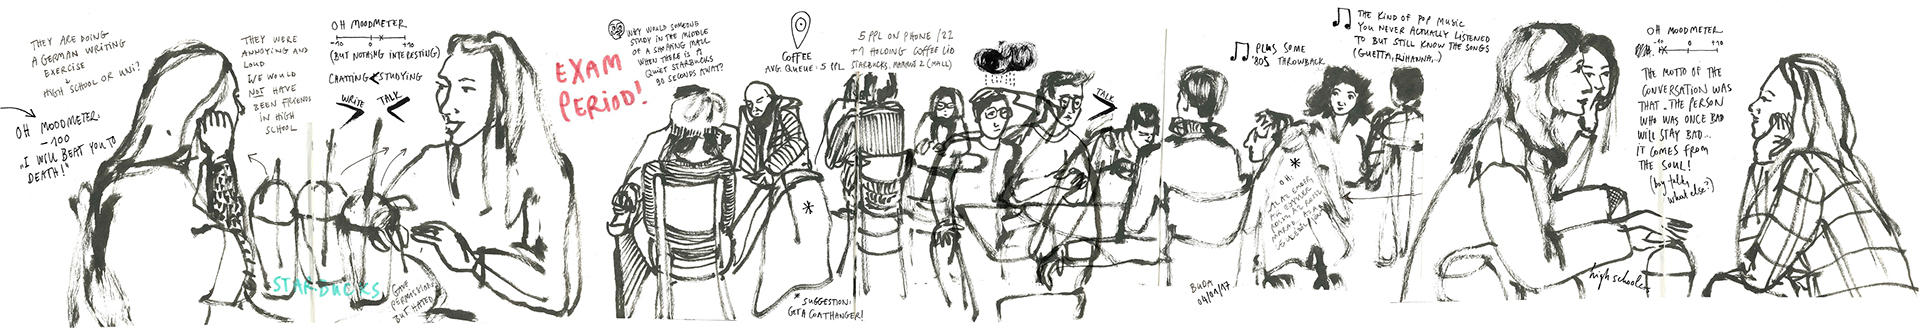 THEY ARE DOING
A GERMAN WRITING
EXERCISE
HIGH SCHOOL OR UNI?
OH MOODMETER:
-100
"I WILL BEAT YOU TO
DEATH!"
THEY WERE
ANNOYING AND
LOUD
WE WOULD
NOT HAVE
BEEN FRIENDS
IN HIGH
SCHOOL
OH MOODMETER
-10 0 +10
(BUT NOTHING INTERESTING)
CHATTING < STUDYING
WRITE > TALK
STARBUCKS
GAVE
PERMISSION
BUT HATED
EXAM
PERIOD!
WHY WOULD SOMEONE
STUDY IN THE MIDDLE
OF A SHOPPING MALL
WHEN THERE IS A
QUIET STARBUCKS
30 SECONDS AWAY?
COFFEE
AVG. QUEUE: 5 PPL
5 PPL ON PHONE /22
+1 HOLDING COFFEE LID
STARBUCKS, MAMMUT 2 (MALL)
*
* SUGGESTION:
GET A COATHANGER!
TALK
PLUS SOME
'80S THROWBACK
THE KIND OF POP MUSIC
YOU NEVER ACTUALLY LISTENED
TO BUT STILL KNOW THE SONGS
(GUETTA, RIHANNA,..)
*
OH:
BUDA
04/01/17
OH MOODMETER
-10 0 +10
THE MOTTO OF THE
CONVERSATION WAS
THAT - THE PERSON
WHO WAS ONCE BAD
WILL STAY BAD...
IT COMES FROM
THE SOUL!
(boy talk,
what else?)
high schoolers